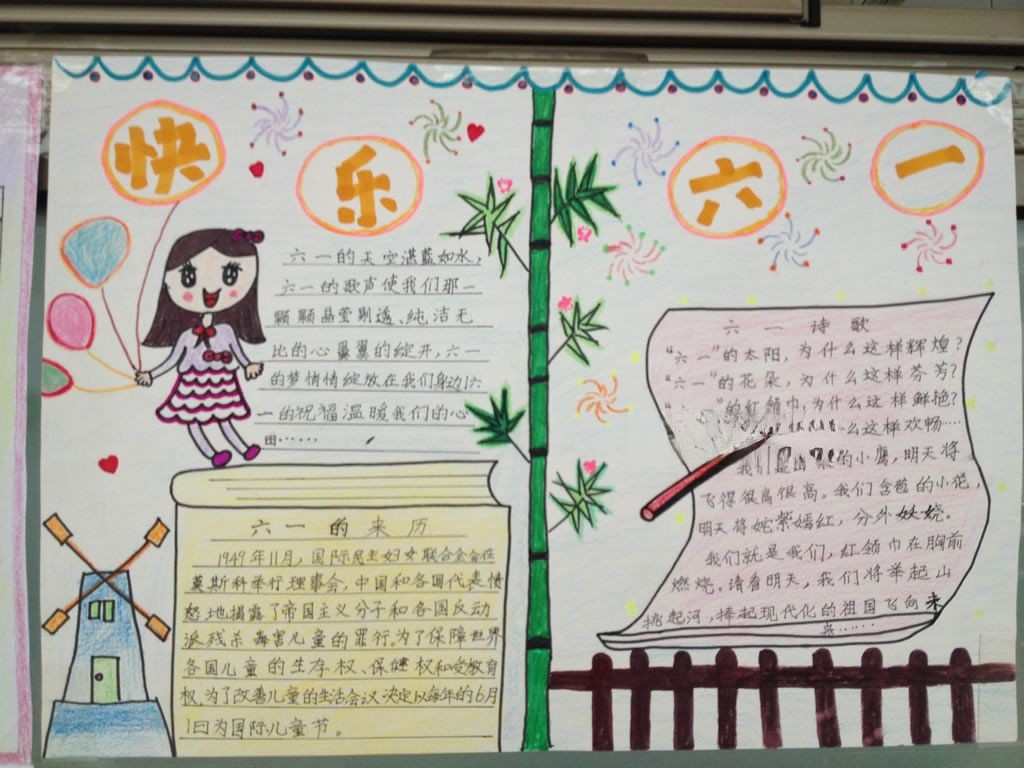 快乐六一
六一的天空湛蓝如水，
六一的歌声使我们那一
颗颗晶莹剔透、纯洁无
比的心翼翼的绽开，六一
的梦情情绽放在我们身边六
一的祝福温暖我们的心
田……
六一的来历
1949年11月，国际民主妇女联合会在
莫斯科举行理事会，中国和各国代表愤
怒地揭露了帝国主义分子和各国反动
派残杀毒害儿童的罪行为了保障世界
各国儿童的生存权、保健权和受教育
权，为了改善儿童的生活会议决定以每年的6月
1日为国际儿童节。
六一诗歌
“六一”的太阳，为什么这样辉煌？
“六一”的花朵，为什么这样芬芳？
”的红领巾为什么这样鲜艳？
么这样欢畅……
我们是 的小鹰，明天将
飞得很高很高。我们含苞的小花，
明天将姹紫嫣红，分外妖娆。
我们就是我们，红领巾在胸前
燃烧。请看明天，我们将举起山
挑起河，捧起现代化的祖国飞向未
来……